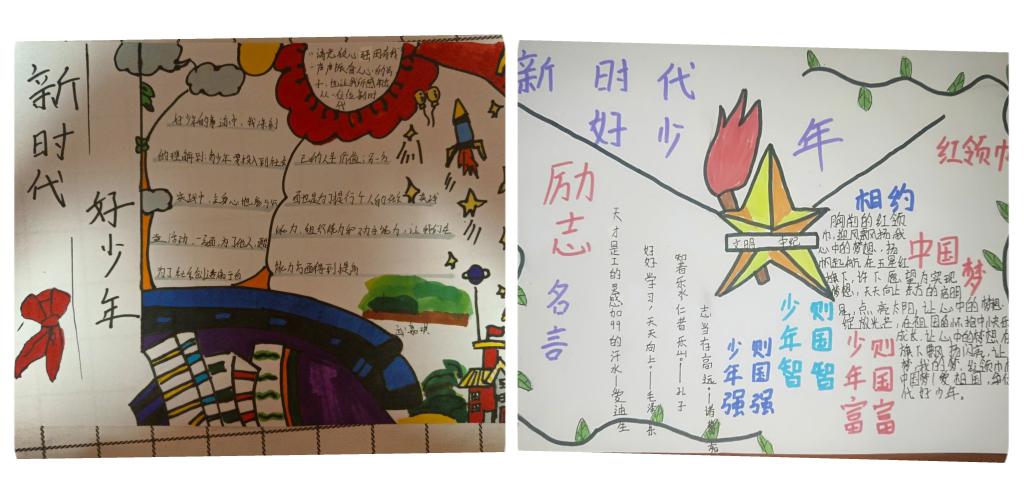 新时代
好少年
“请党放心,强国有我”
一声声振奋人心
好少年的事迹中,我深刻
的理解到:青少年要投入到社会
实践中,去身心地参与
活动,一方面,为了他人,
为了社会创造属于自
己的人生价值;另一方
面也是为了提升个人的
能力、组织能力和动手能力,让
能力方面得到提高
新时代
好少年
励志
名言
天才是1%的灵感加99%的汗水——爱迪生
好好学习,天天向上。——毛泽东
智者乐水,仁者乐山。——孔子
志当存高远。——诸葛亮
文明
少年智
则国智
少年强
则国强
少年富
则国富
红领巾
相约
中国
梦
胸前的红领
巾,迎风飘扬,我
心中的梦想,扬
帆起航,在五星红
旗下,许下愿望,为实现
梦想,天天向上,东方的启明
星,点亮太阳,让心中的梦想
绽放光芒,在祖国的怀抱中快乐
成长,让心中的梦想在
旗下飘扬
梦,我的梦,红领巾
中国梦!爱祖国,争做
代好少年。